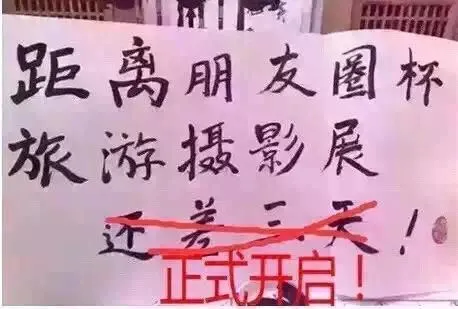 距离朋友圈杯
旅游摄影展
还差三天！
正式开启！